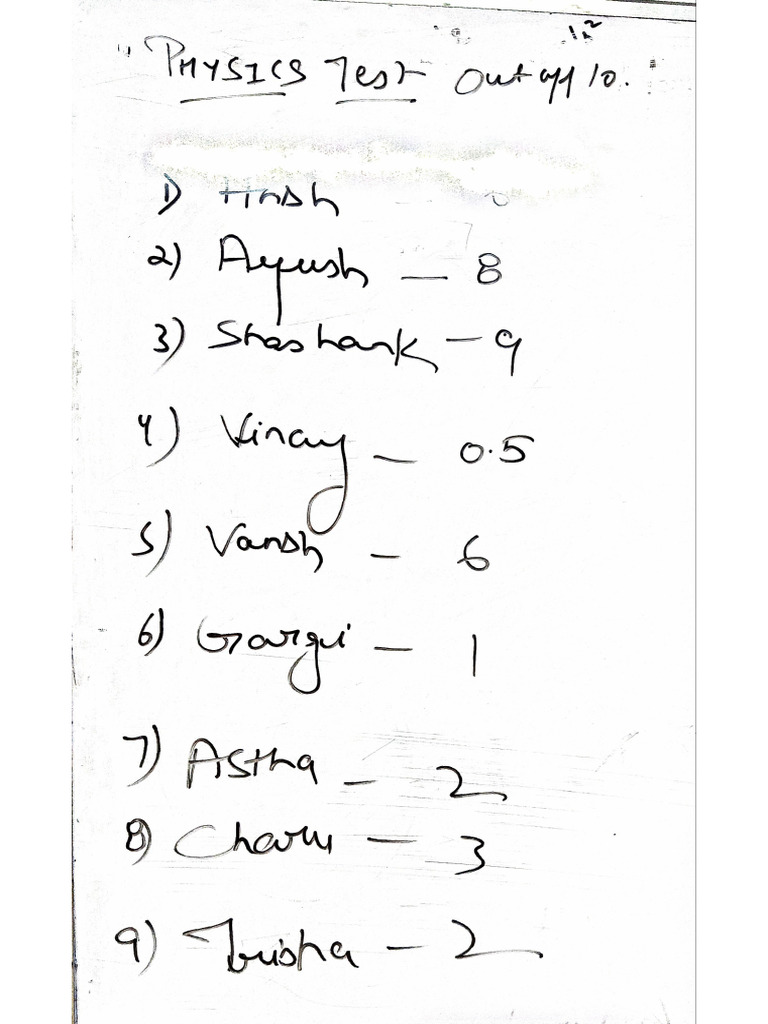 "PHYSICS Test Out off 10."
1) Harsh 0
2) Ayush - 8
3) Shashank - 9
4) Vinay - 0.5
5) Vansh - 6
6) Gargi - 1
7) Astha - 2
8) Charu - 3
9) Trisha - 2